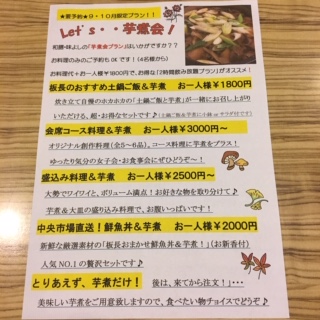 ★要予約★9・10月限定プラン！！
Let's・・芋煮会！
和膳・味よしの「芋煮会プラン」はいかがですか？？
お料理のみのご予約もOKです（4名様から）
お料理代+お一人様¥1800円で、お得な「2時間飲み放題プラン」がオススメ！
板長のおすすめ土鍋ご飯&芋煮　お一人様¥1800
炊き立て自慢のホカホカの「土鍋ご飯&芋煮」が一緒にお召し上がり
いただける、超・お得なセットです♪（土鍋ご飯&芋煮に小鉢orサラダ付です）
会席コース料理&芋煮　お一人様¥3000円～
オリジナル創作料理（全5～6品）、コース料理に芋煮をプラス！
ゆったり気分の女子会・お食事会にぜひどうぞ～！
盛込み料理&芋煮　お一人様¥2500円～
大勢でワイワイと、ボリューム満点！お好きな物を取り分けて♪
芋煮&大皿の盛り込み料理で、お腹いっぱいです！
中央市場直送！鮮魚丼&芋煮　お一人様¥2000円
新鮮な厳選素材の「板長おまかせ鮮魚丼&芋煮！」（お新香付）
人気NO.1の贅沢セットです♪
とりあえず、芋煮だけ！　後は、来てから注文！・・・
美味しい芋煮をご用意致しますので、食べたい物チョイスでどうぞ♪